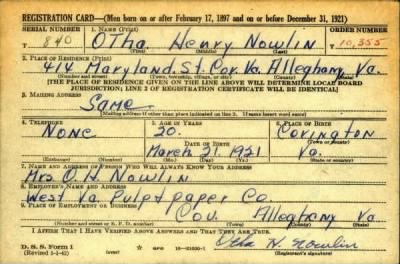 REGISTRATION CARD—(Men born on or after February 17, 1897 and on or before December 31, 1921)
SERIAL NUMBER 1. NAME (Print) ORDER NUMBER
T 840 Otha Henry Nowlin T 10,355
(First) (Middle) (Last)
2. PLACE OF RESIDENCE (Print)
414 Maryland St. Cov. Va. Alleghany Va.
(Number and street) (Town, township, village, or city) (County) (State)
[THE PLACE OF RESIDENCE GIVEN ON THE LINE ABOVE WILL DETERMINE LOCAL BOARD
JURISDICTION; LINE 2 OF REGISTRATION CERTIFICATE WILL BE IDENTICAL]
3. MAILING ADDRESS
Same
(Mailing address if other than place indicated on line 2. If same insert word same)
4. TELEPHONE 5. AGE IN YEARS 6. PLACE OF BIRTH
None 20. Covington
DATE OF BIRTH
March 21 1921 Va.
(Exchange) (Number) (Mo.) (Day) (Yr.) (State or country)
7. NAME AND ADDRESS OF PERSON WHO WILL ALWAYS KNOW YOUR ADDRESS
Mrs O. H. Nowlin
8. EMPLOYER'S NAME AND ADDRESS
West Va Pulp & paper Co.
9. PLACE OF EMPLOYMENT OR BUSINESS
Cov. Alleghany Va
(Number and street or R. F. D. number) (Town) (County) (State)
I AFFIRM THAT I HAVE VERIFIED ABOVE ANSWERS AND THAT THEY ARE TRUE.
D. S. S. Form 1
(over) Otha H. Nowlin
(Registrant's signature)